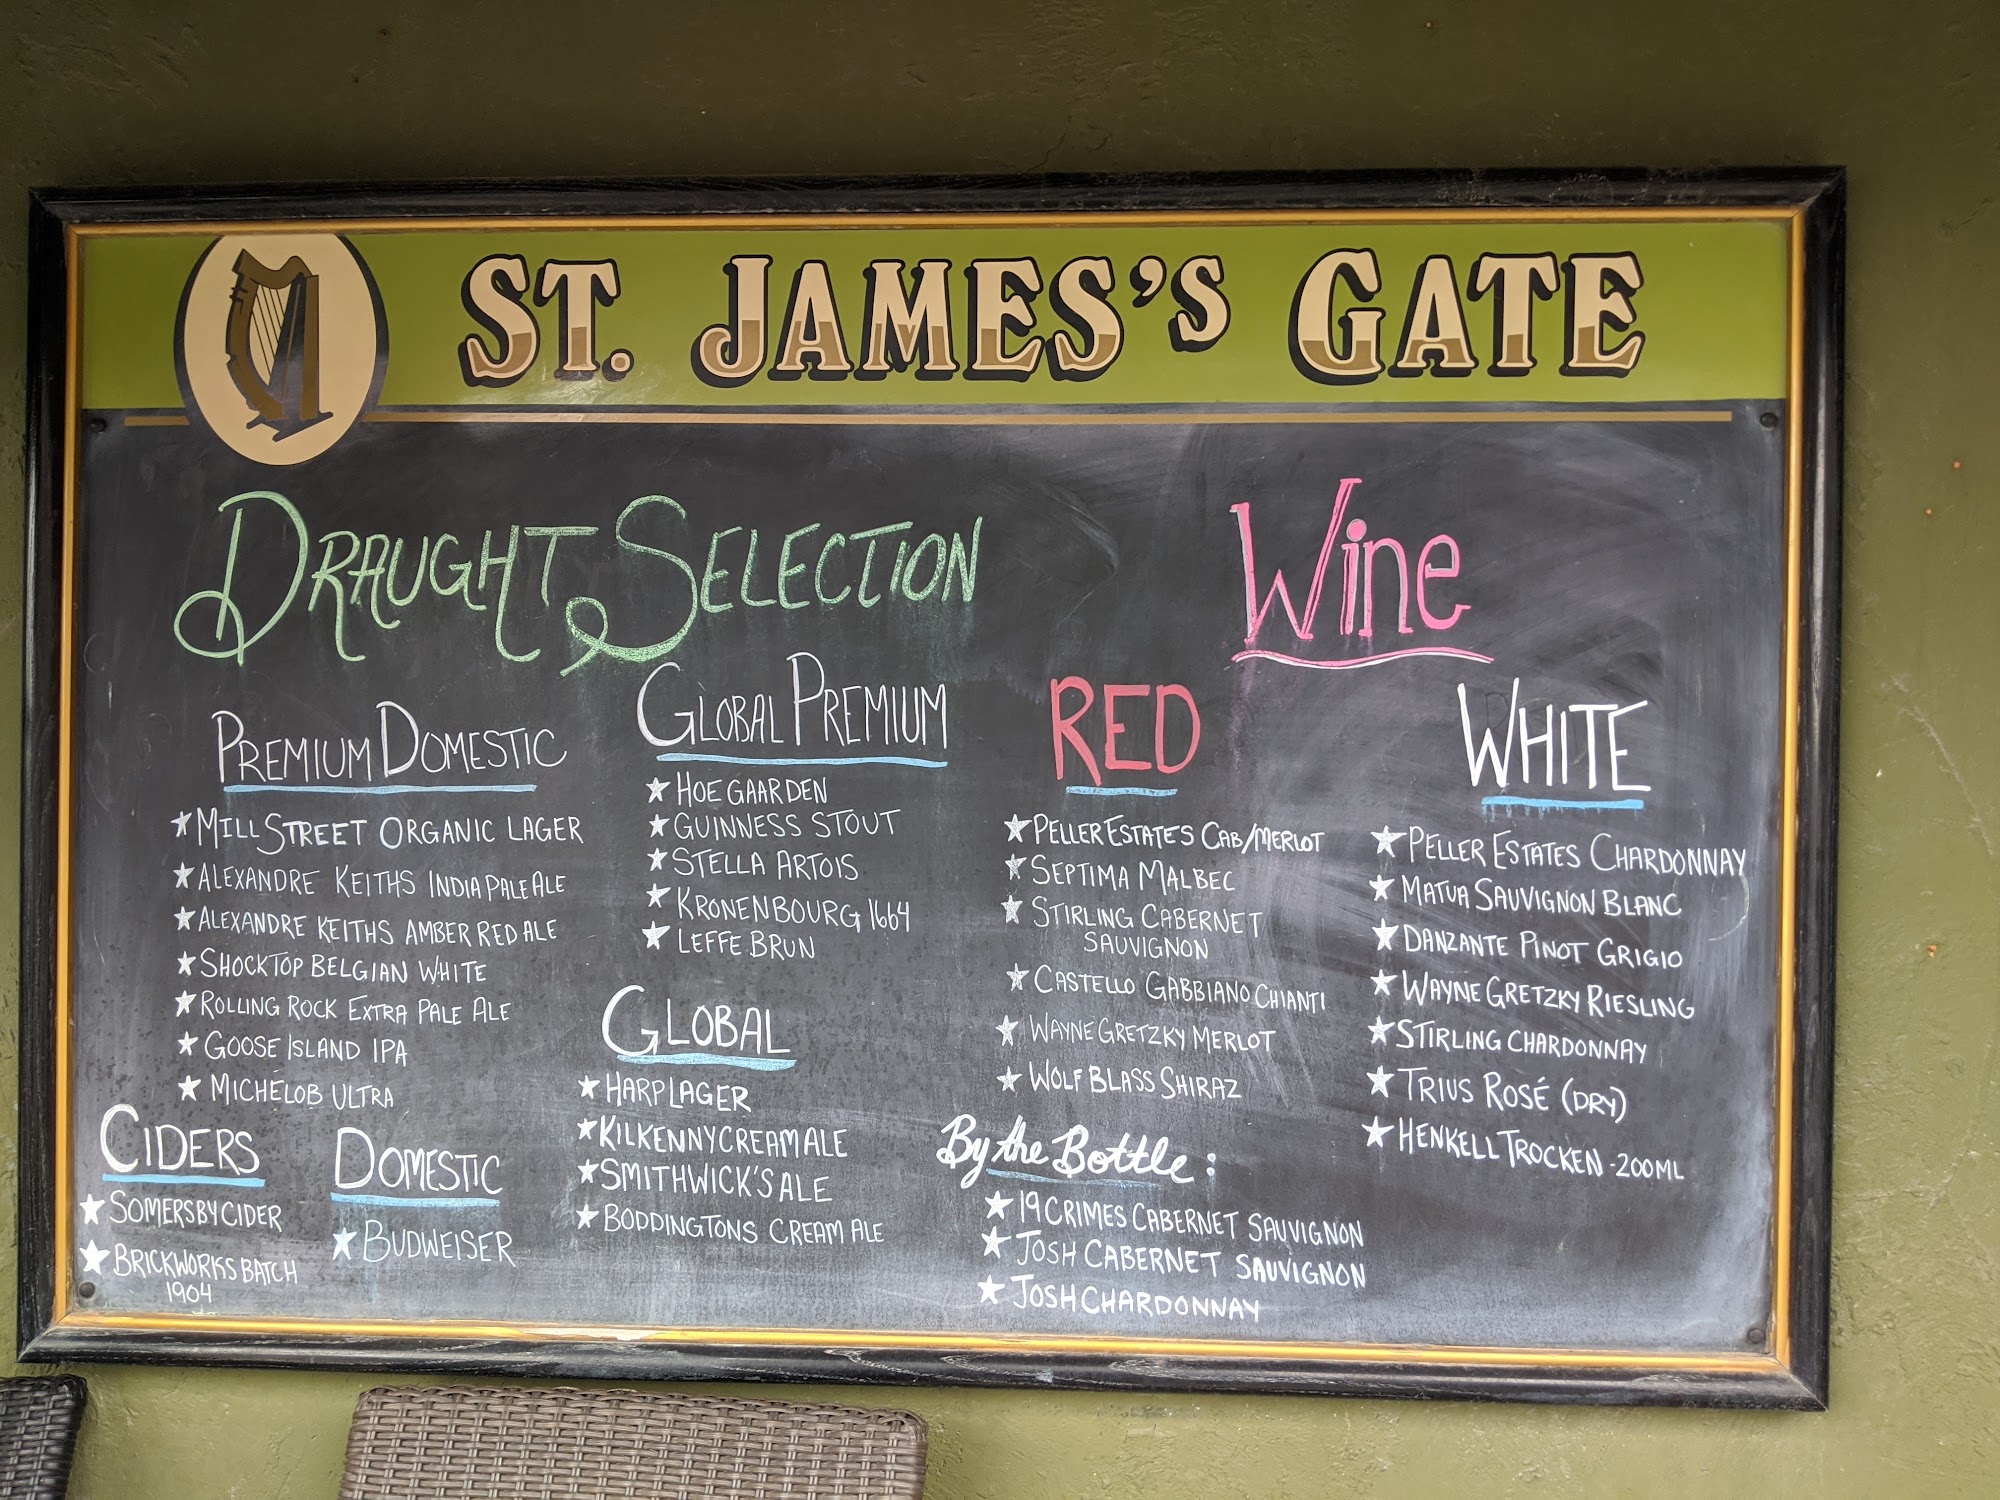 ST. JAMES'S GATE
DRAUGHT SELECTION
PREMIUM DOMESTIC
MILL STREET ORGANIC LAGER
ALEXANDRE KEITHS INDIA PALE ALE
ALEXANDRE KEITHS AMBER RED ALE
SHOCKTOP BELGIAN WHITE
ROLLING ROCK EXTRA PALE ALE
GOOSE ISLAND IPA
MICHELOB ULTRA
CIDERS
SOMERSBY CIDER
BRICKWORKS BATCH
1904
DOMESTIC
BUDWEISER
GLOBAL PREMIUM
HOEGAARDEN
GUINNESS STOUT
STELLA ARTOIS
KRONENBOURG 1664
LEFFE BRUN
GLOBAL
HARP LAGER
KILKENNY CREAM ALE
SMITHWICK'S ALE
BODDINGTONS CREAM ALE
Wine
RED
PELLER ESTATES CAB/MERLOT
SEPTIMA MALBEC
STIRLING CABERNET
SAUVIGNON
CASTELLO GABBIANO CHIANTI
WAYNE GRETZKY MERLOT
WOLF BLASS SHIRAZ
By the Bottle:
19 CRIMES CABERNET SAUVIGNON
JOSH CABERNET SAUVIGNON
JOSH CHARDONNAY
WHITE
PELLER ESTATES CHARDONNAY
MATUA SAUVIGNON BLANC
DANZANTE PINOT GRIGIO
WAYNE GRETZKY RIESLING
STIRLING CHARDONNAY
TRIUS ROSÉ (DRY)
HENKELL TROCKEN - 200ML